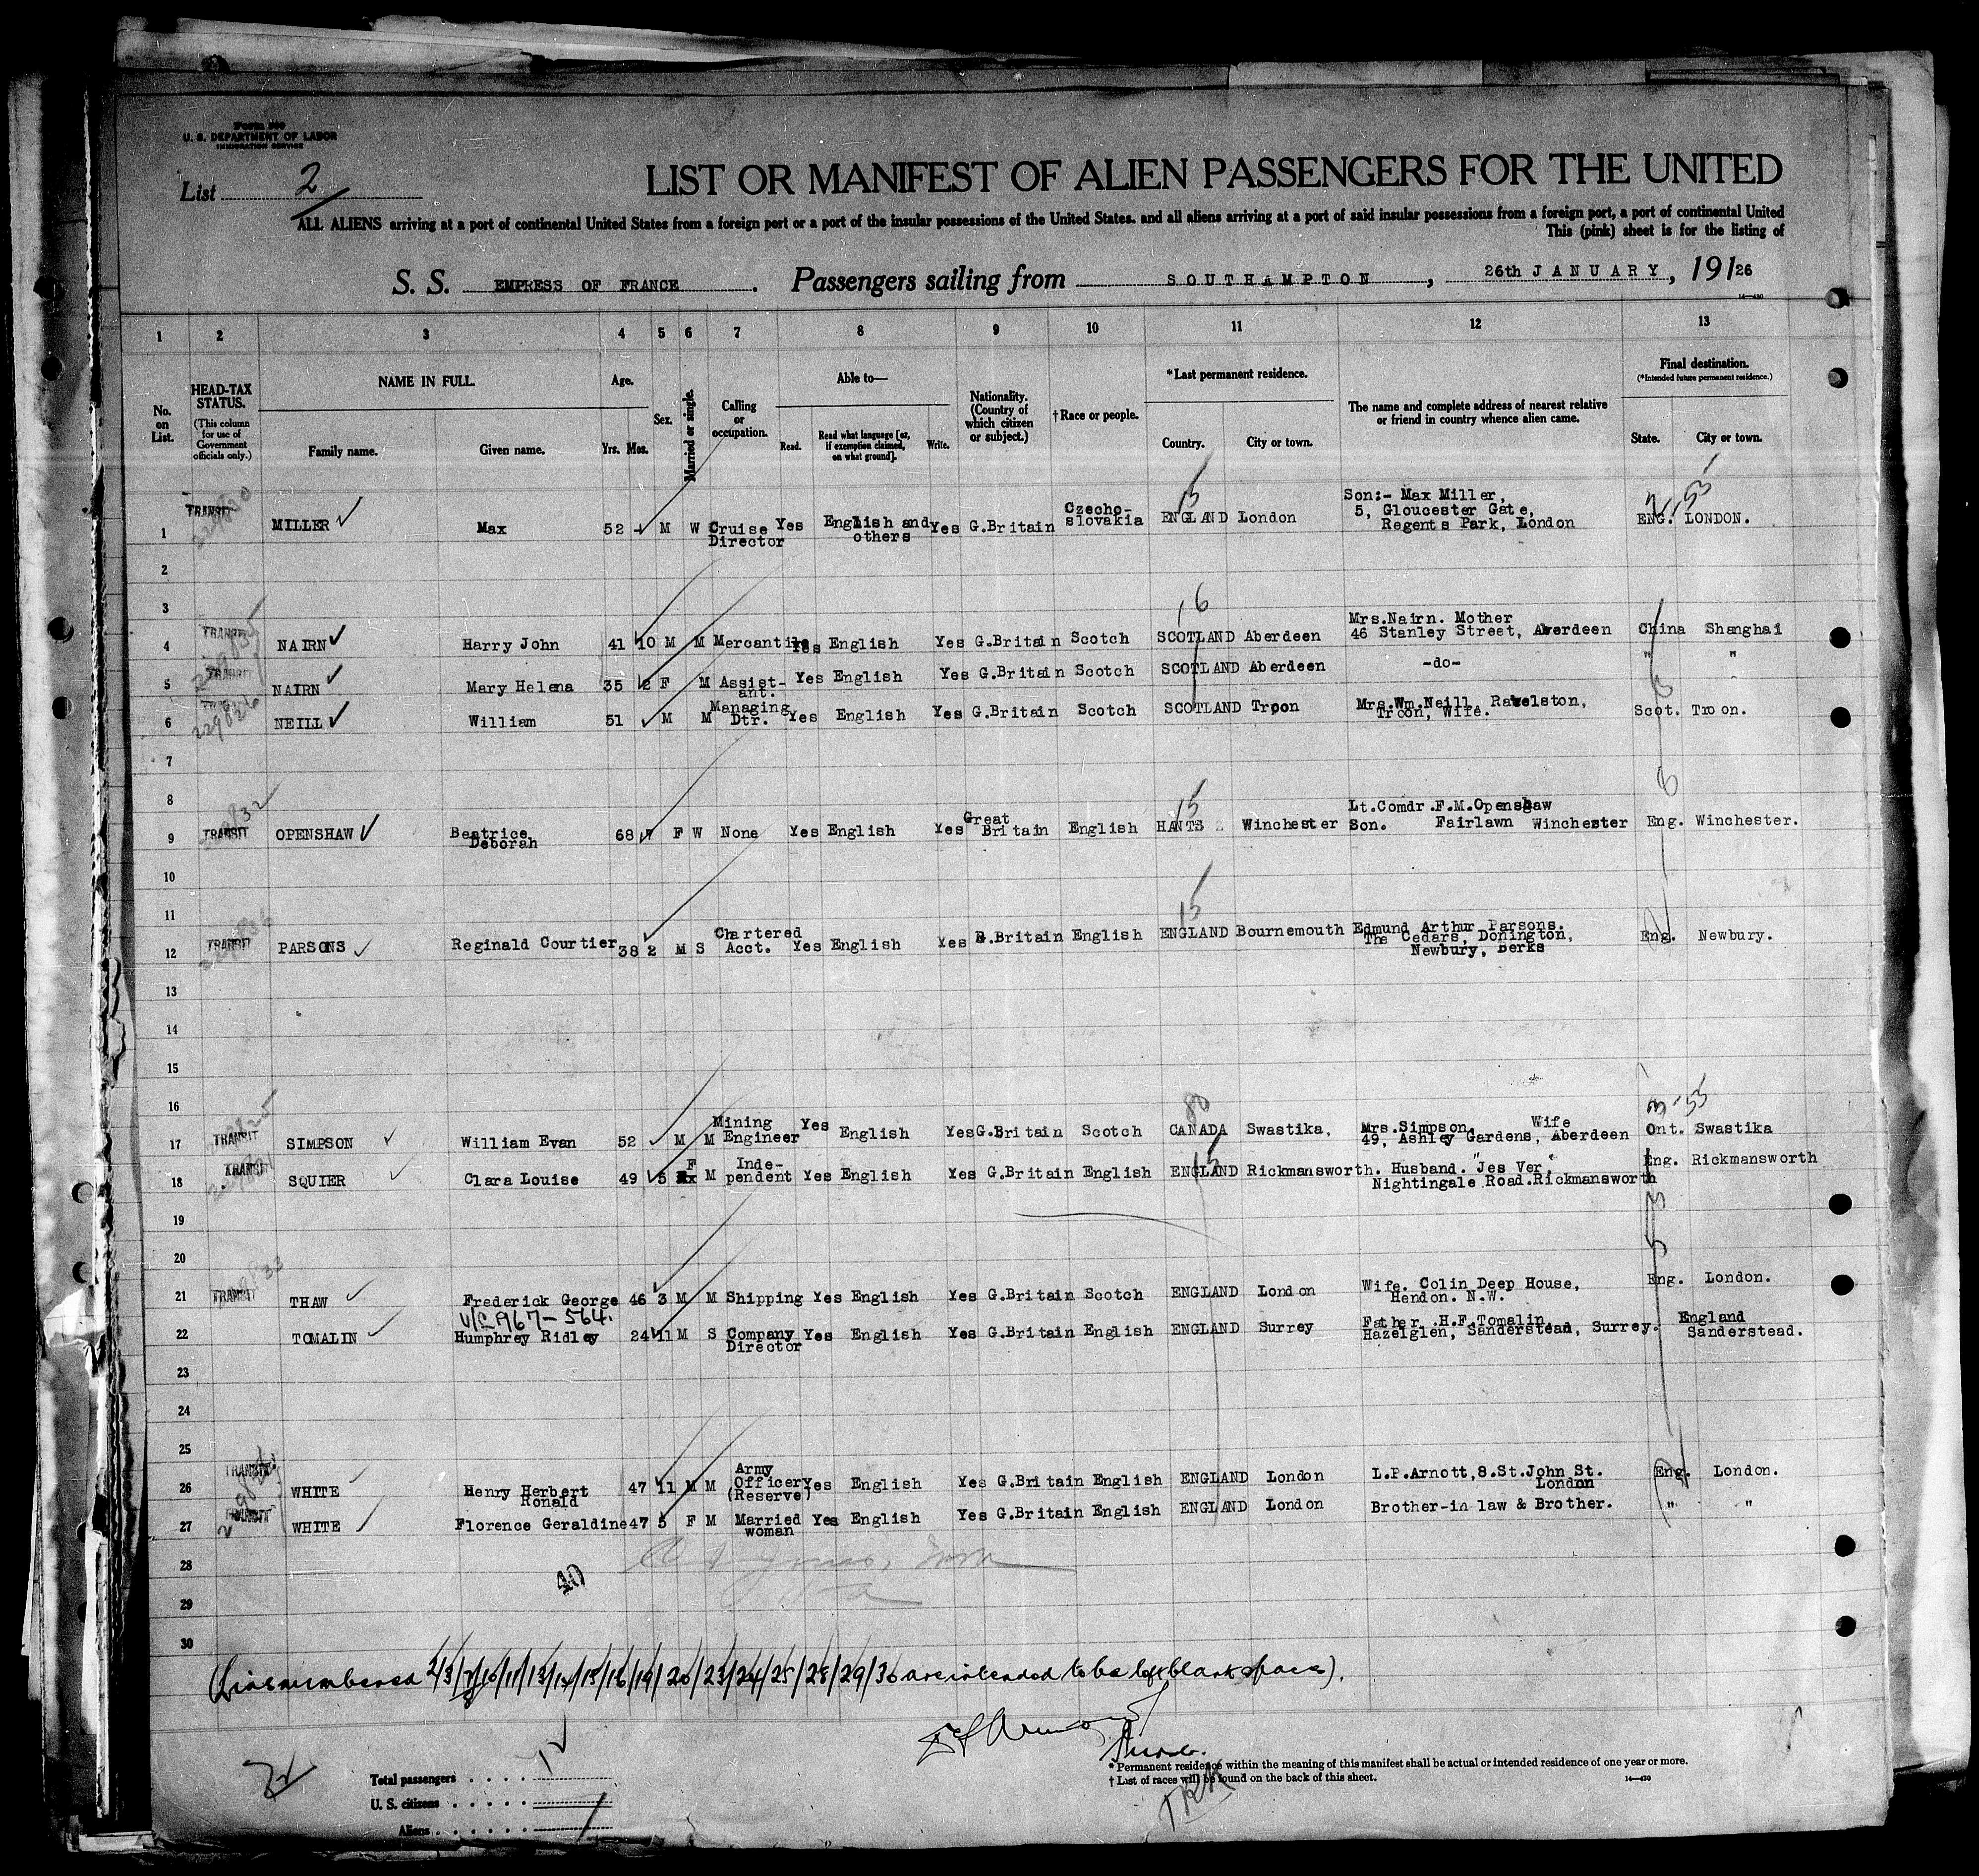 Form 500
U. S. DEPARTMENT OF LABOR
IMMIGRATION SERVICE
List 2
LIST OR MANIFEST OF ALIEN PASSENGERS FOR THE UNITED
ALL ALIENS arriving at a port of continental United States from a foreign port or a port of the insular possessions of the United States, and all aliens arriving at a port of said insular possessions from a foreign port, a port of continental United
This (pink) sheet is for the listing of
S. S. EMPRESS OF FRANCE. Passengers sailing from SOUTHAMPTON, 26th JANUARY, 19126
14—430
1 2 3 4 5 6 7 8 9 10 11 12 13
No. on List.
HEAD-TAX STATUS. (This column for use of Government officials only.)
NAME IN FULL. Family name. Given name.
Age. Yrs. Mos.
Sex.
Married or single.
Calling or occupation.
Able to— Read. Read what language [or, if exemption claimed, on what ground]. Write.
Nationality. (Country of which citizen or subject.)
†Race or people.
*Last permanent residence. Country. City or town.
The name and complete address of nearest relative or friend in country whence alien came.
Final destination. (*Intended future permanent residence.) State. City or town.
1 TRANSIT MILLER Max 52 M W Cruise Director Yes English and others Yes G.Britain Czecho-slovakia ENGLAND London Son:- Max Miller, 5, Gloucester Gate, Regents Park, London ENG. LONDON.
2
3
4 TRANSIT NAIRN Harry John 41 10 M M Mercantile Yes English Yes G.Britain Scotch SCOTLAND Aberdeen Mrs.Nairn. Mother 46 Stanley Street, Aberdeen China Shanghai
5 TRANSIT NAIRN Mary Helena 35 2 F M Assist-ant. Yes English Yes G.Britain Scotch SCOTLAND Aberdeen -do- " "
6 229826 NEILL William 51 M M Managing Dtr. Yes English Yes G.Britain Scotch SCOTLAND Troon Mrs.Wm.Neill, Ravelston, Troon, Wife. Scot. Troon.
7
8
9 TRANSIT OPENSHAW Beatrice Deborah 68 7 F W None Yes English Yes Great Britain English HANTS Winchester Lt.Comdr.F.M.Openshaw Son. Fairlawn Winchester Eng. Winchester.
10
11
12 TRANSIT PARSONS Reginald Courtier 38 2 M S Chartered Acct. Yes English Yes G.Britain English ENGLAND Bournemouth Edmund Arthur Parsons. The Cedars, Donington, Newbury, Berks Eng. Newbury.
13
14
15
16
17 TRANSIT SIMPSON William Evan 52 M M Mining Engineer Yes English Yes G.Britain Scotch CANADA Swastika, Mrs.Simpson, Wife 49, Ashley Gardens, Aberdeen Ont. Swastika
18 TRANSIT SQUIER Clara Louise 49 5 F M Inde-pendent Yes English Yes G.Britain English ENGLAND Rickmansworth. Husband. "Jes Ver," Nightingale Road.Rickmansworth Eng. Rickmansworth
19
20
21 TRANSIT THAW Frederick George 46 3 M M Shipping Yes English Yes G.Britain Scotch ENGLAND London Wife. Colin Deep House, Hendon. N.W. Eng. London.
22 TOMALIN Humphrey Ridley 24 11 M S Company Director Yes English Yes G.Britain English ENGLAND Surrey Father .H.F.Tomalin, Hazelglen, Sanderstead, Surrey. England Sanderstead.
23
24
25
26 TRANSIT WHITE Henry Herbert Ronald 47 11 M M Army Officer (Reserve) Yes English Yes G.Britain English ENGLAND London L.P.Arnott,8.St.John St. London Eng. London.
27 TRANSIT WHITE Florence Geraldine 47 5 F M Married woman Yes English Yes G.Britain English ENGLAND London Brother-in law & Brother. " "
28
40
29
30
(Lines numbered 2/3/7/8/10/11/13/14/15/16/19/20/23/24/25/28/29/30 are intended to be left blank space).
Total passengers
U. S. citizens
Aliens
* Permanent residence within the meaning of this manifest shall be actual or intended residence of one year or more.
† List of races will be found on the back of this sheet.
14—430